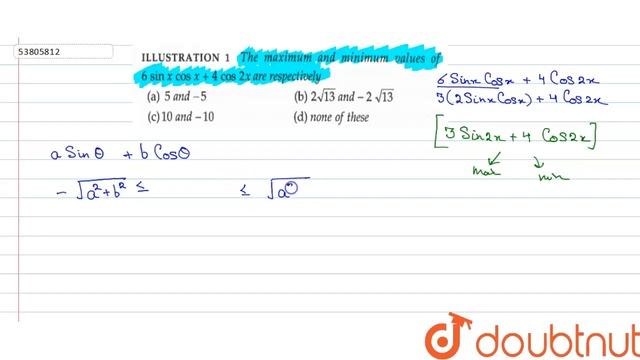 53805812
ILLUSTRATION 1 The maximum and minimum values of
6 sin x cos x + 4 cos 2x are respectively
(a) 5 and –5 (b) 2√13 and – 2 √13
(c) 10 and – 10 (d) none of these
6 Sinx Cosx + 4 Cos2x
3(2SinxCosx) + 4 Cos2x
[3 Sin2x + 4 Cos2x]
max min
a Sinθ + b Cosθ
- √a²+b² ≤ ≤ √a²
doubtnut